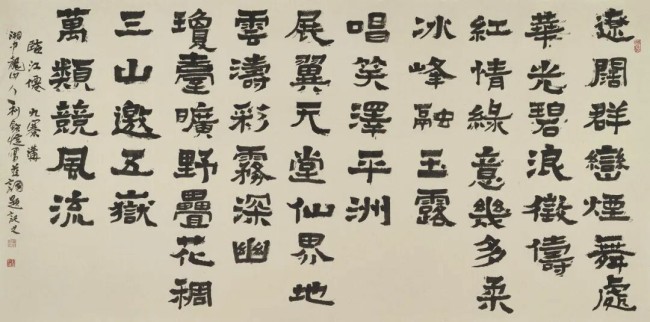 遼闊群巒煙舞處
華光碧浪徵儔
紅情綠意幾多柔
冰峰融玉露
唱笑澤平洲
展翼天堂仙界地
雲濤彩霧深幽
瓊臺曠野疊花稠
三山邀五嶽
萬類競風流
臨江僊 九寨溝